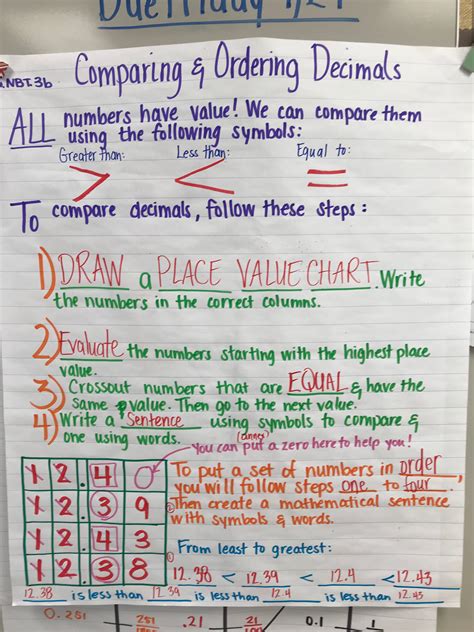 Due Friday 9/29
.NBT.3b Comparing & Ordering Decimals
ALL numbers have value! We can compare them
using the following symbols:
Greater than: Less than: Equal to:
> < =
To compare decimals, follow these steps:
1) DRAW a PLACE VALUE CHART. Write
the numbers in the correct columns.
2) Evaluate the numbers starting with the highest place
value.
3) Crossout numbers that are EQUAL & have the
same value. Then go to the next value.
4) Write a Sentence using symbols to compare &
one using words.
you can put a zero here to help you!
1 2 . 4 0
1 2 . 3 9
1 2 . 4 3
1 2 . 3 8
To put a set of numbers in order,
you will follow steps one to four.
Then create a mathematical sentence
with symbols & words.
From least to greatest:
12.38 < 12.39 < 12.4 < 12.43
12.38 is less than 12.39 is less than 12.4 is less than 12.43
0.251 251 .21 21 0.1 1